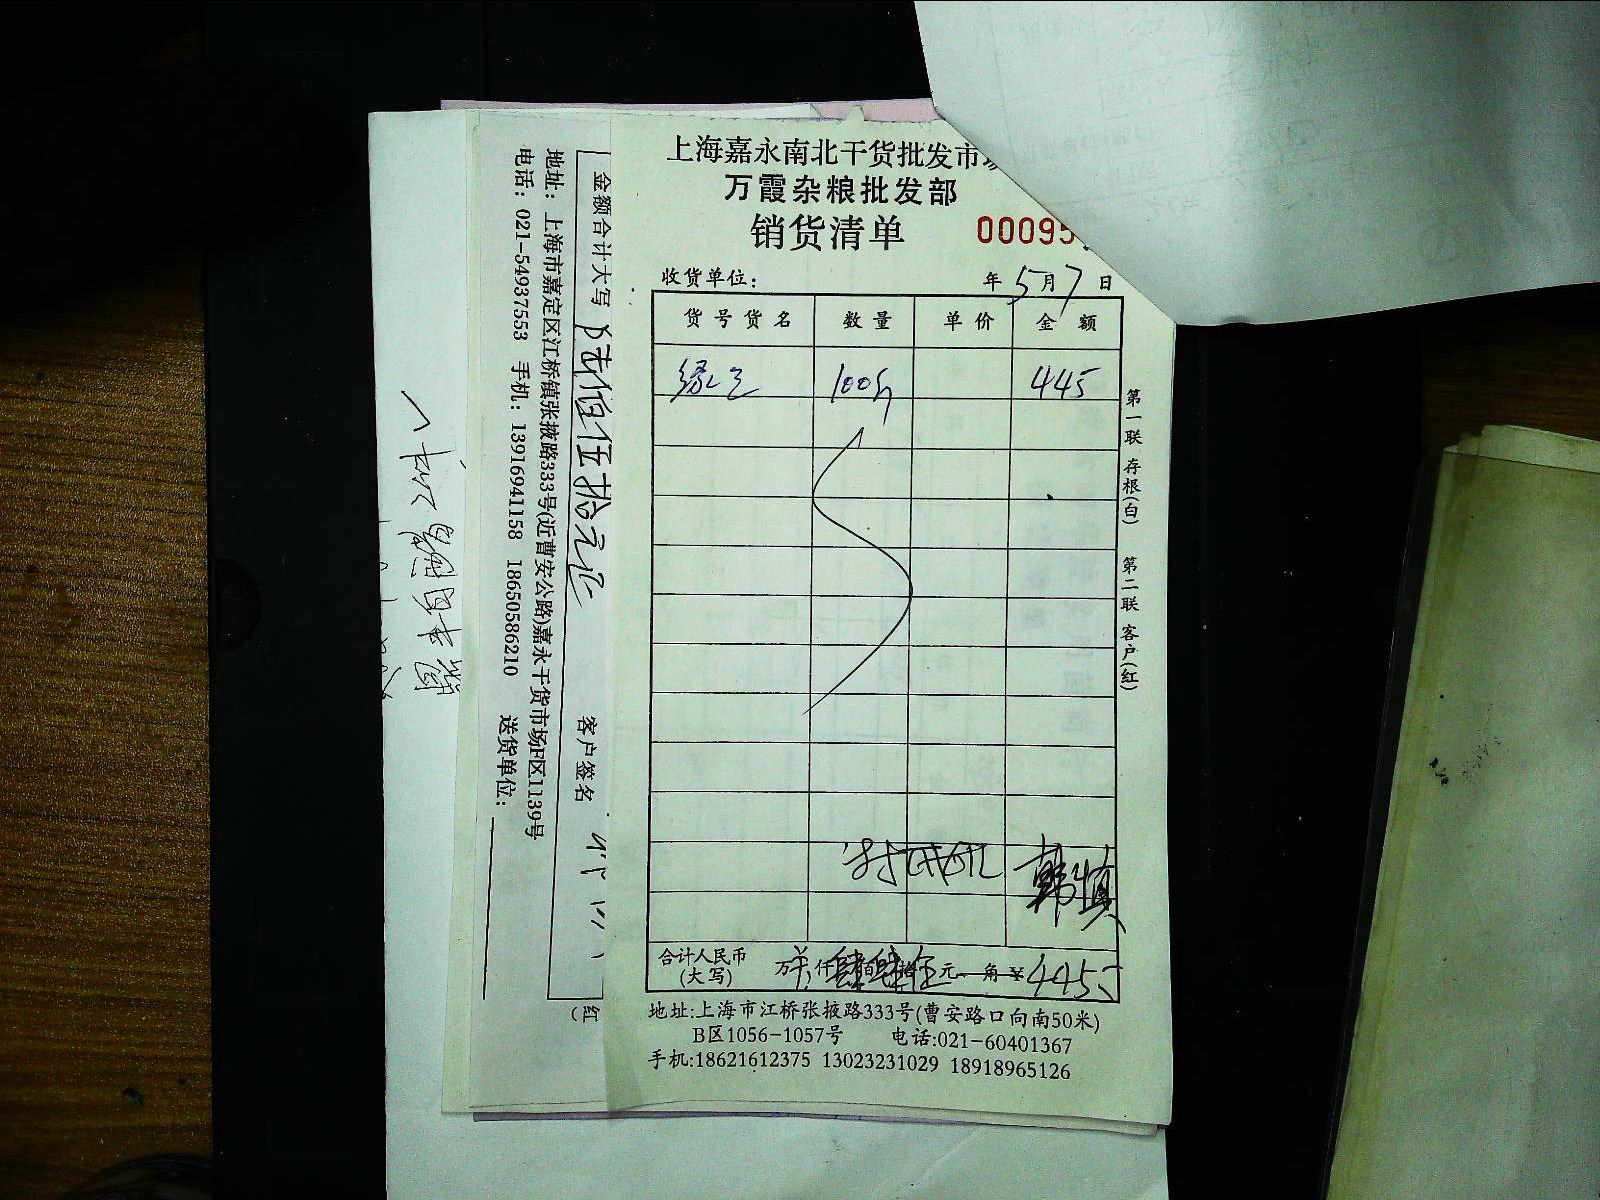 上海嘉永南北干货批发市
万霞杂粮批发部
销货清单
00095
收货单位: 年 5 月 7 日
货号货名 数量 单价 金额
绿豆 100斤 445
韩慎
合计人民币(大写) 万 仟 肆佰 肆拾 伍元 角 ¥ 445
地址:上海市江桥张掖路333号(曹安路口向南50米)
B区1056-1057号 电话:021-60401367
手机:18621612375 13023231029 18918965126
第一联 存根(白) 第二联 客户(红)
金额合计大写 陆佰伍拾元正 客户签名
地址: 上海市嘉定区江桥镇张掖路333号(近曹安公路)嘉永干货市场F区1139号
电话: 021-54937553 手机: 13916941158 18650586210 送货单位:
(红